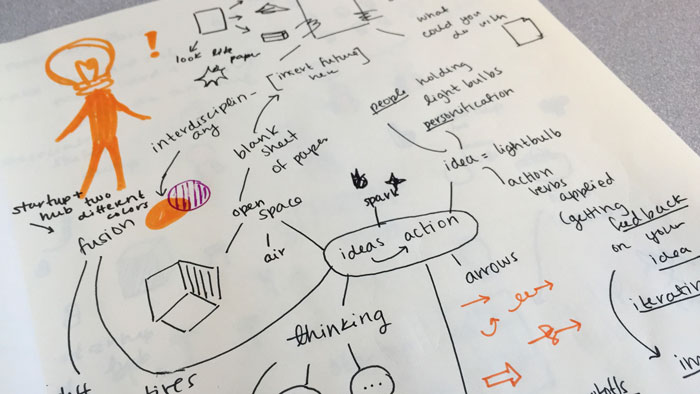 what
could you
do with
look like
paper
[insert future]
here
people holding
light bulbs
personification
interdisciplin-
ary
blank
sheet
of paper
idea = lightbulb
action
verbs
applied
(getting
feedback
on your
idea
startup +
hub
two
different
colors
fusion
open
space
air
spark
ideas action
arrows
thinking